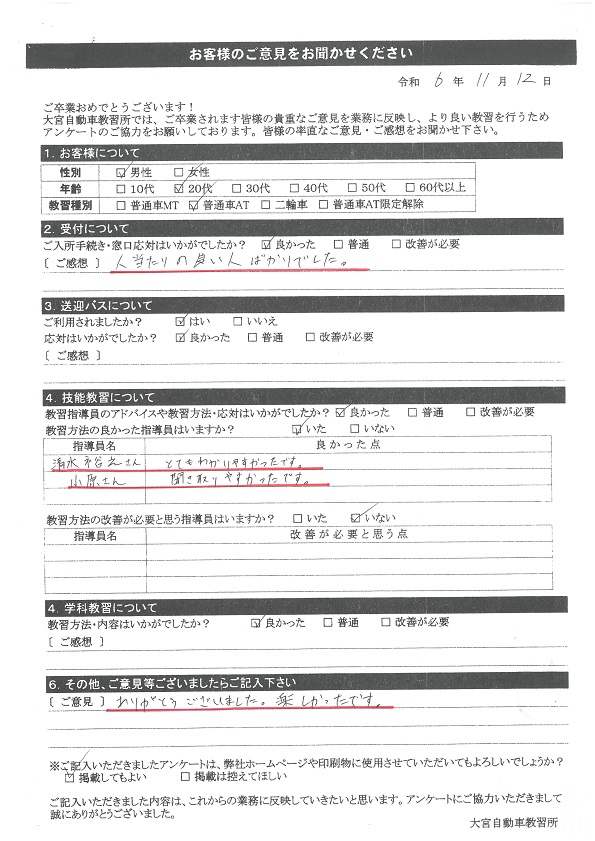 お客様のご意見をお聞かせください
令和 6 年 11 月 12 日
ご卒業おめでとうございます！
大宮自動車教習所では、ご卒業されます皆様の貴重なご意見を業務に反映し、より良い教習を行うため
アンケートのご協力をお願いしております。皆様の率直なご意見・ご感想をお聞かせ下さい。
1. お客様について
性別 ☑男性 □女性
年齢 □10代 ☑20代 □30代 □40代 □50代 □60代以上
教習種別 □普通車MT ☑普通車AT □二輪車 □普通車AT限定解除
2. 受付について
ご入所手続き・窓口応対はいかがでしたか？ ☑良かった □普通 □改善が必要
[ ご感想 ] 人当たりの良い人ばかりでした。
3. 送迎バスについて
ご利用されましたか？ ☑はい □いいえ
応対はいかがでしたか？ ☑良かった □普通 □改善が必要
[ ご感想 ]
4. 技能教習について
教習指導員のアドバイスや教習方法・応対はいかがでしたか？ ☑良かった □普通 □改善が必要
教習方法の良かった指導員はいますか？ ☑いた □いない
指導員名 良かった点
清水 さん とてもわかりやすかったです。
小原さん 聞き取りやすかったです。
教習方法の改善が必要と思う指導員はいますか？ □いた ☑いない
指導員名 改善が必要と思う点
4. 学科教習について
教習方法・内容はいかがでしたか？ ☑良かった □普通 □改善が必要
[ ご感想 ]
6. その他、ご意見等ございましたらご記入下さい
[ ご意見 ] ありがとうございました。楽しかったです。
※ご記入いただきましたアンケートは、弊社ホームページや印刷物に使用させていただいてもよろしいでしょうか？
☑掲載してもよい □掲載は控えてほしい
ご記入いただきました内容は、これからの業務に反映していきたいと思います。アンケートにご協力いただきまして
誠にありがとうございました。
大宮自動車教習所